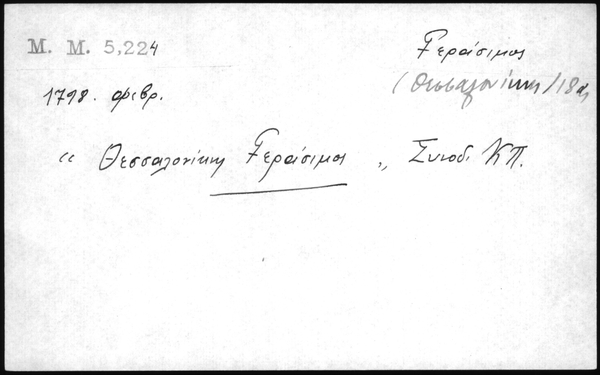 M. M. 5,224
Γεράσιμος
(Θεσσαλονίκης/18
1798. φεβρ.
“ Θεσσαλονίκης Γεράσιμος „ Συνοδ. ΚΠ.